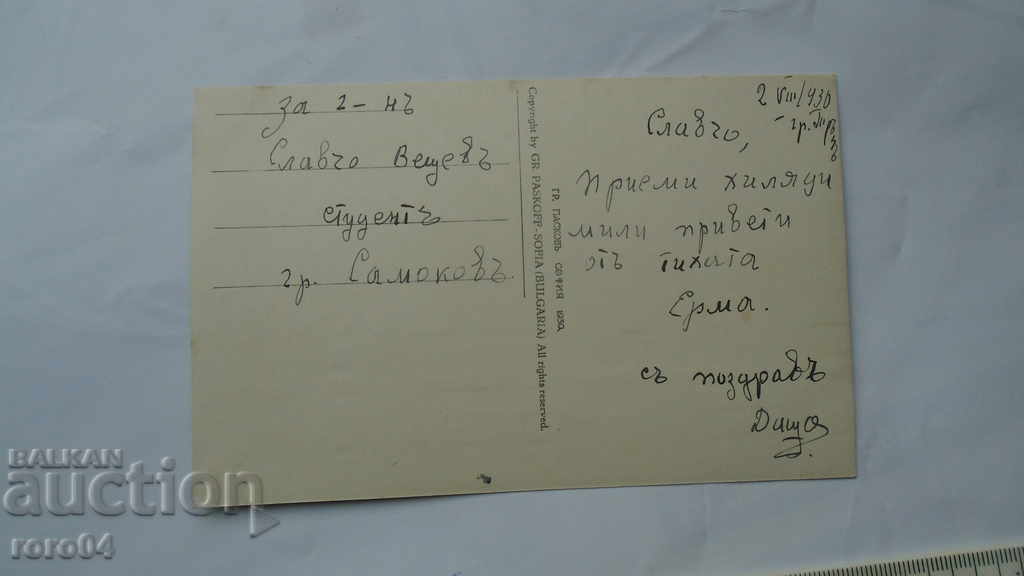 за г-нъ
Славчо Вещевъ
студентъ
гр. Самоковъ
Copyright by GR. PASKOFF-SOFIA (BULGARIA) All rights reserved.
ГР. ПАСКОВЪ СОФИЯ 1930.
2 VIII/930
гр.
Славчо,
приеми хиляди
мили привети
отъ тихата
Ерма.
съ поздравъ
BALKAN
auction
roro04